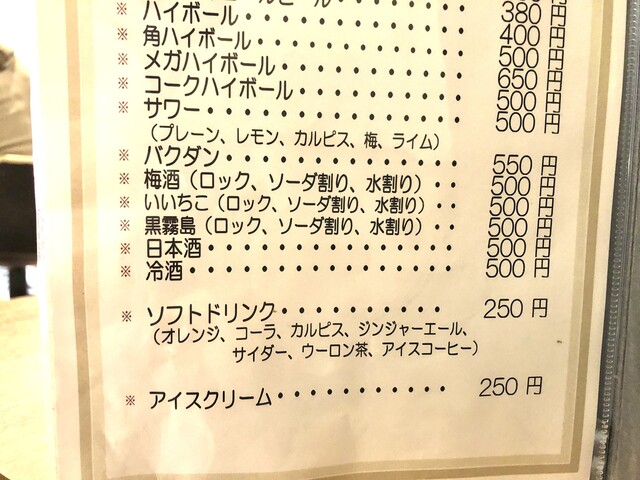 ール 380円
※ ハイボール・・・・・・・・・・ 400円
※ 角ハイボール・・・・・・・・・ 500円
※ メガハイボール・・・・・・・・ 650円
※ コークハイボール・・・・・・・ 500円
※ サワー・・・・・・・・・・・・ 500円
（プレーン、レモン、カルピス、梅、ライム）
※ バクダン・・・・・・・・・・・ 550円
※ 梅酒（ロック、ソーダ割り、水割り）・・ 500円
※ いいちこ（ロック、ソーダ割り、水割り）・・ 500円
※ 黒霧島（ロック、ソーダ割り、水割り）・・ 500円
※ 日本酒・・・・・・・・・・・・ 500円
※ 冷酒・・・・・・・・・・・・・ 500円
※ ソフトドリンク・・・・・・・・・・ 250円
（オレンジ、コーラ、カルピス、ジンジャーエール、
サイダー、ウーロン茶、アイスコーヒー）
※ アイスクリーム・・・・・・・・・・・ 250円